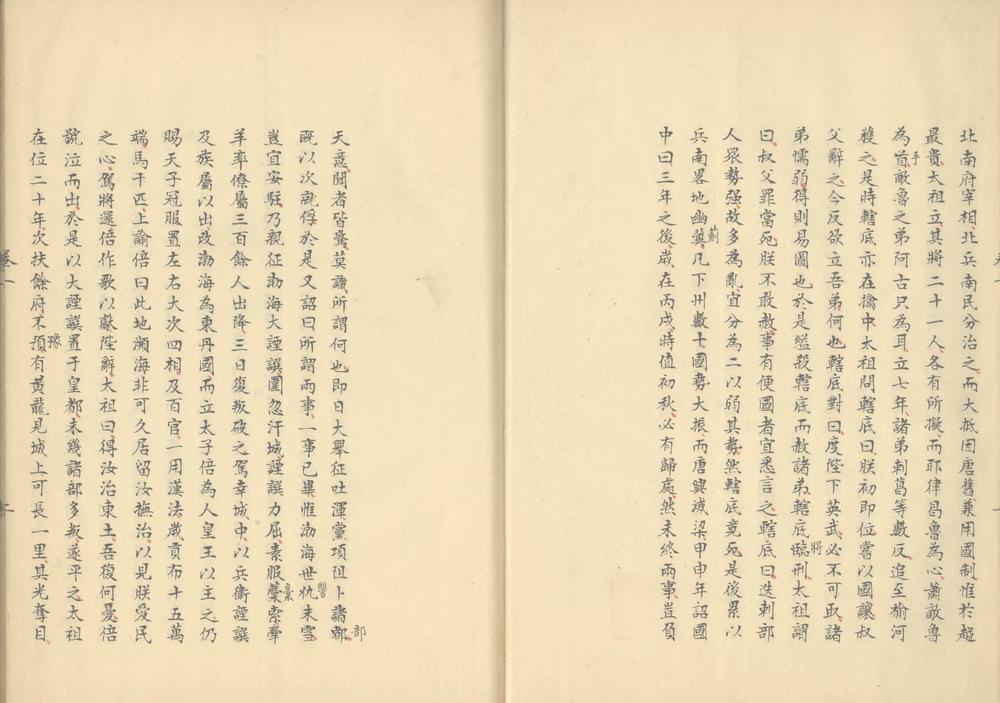 北南府宰相、北兵南民分治之、而大抵因唐舊、兼用國制、惟於越
最貴、太祖立、其將二十一人、各有所擬、而耶律曷魯為心、蕭敵魯
為首、敵魯之弟阿古只為耳、立七年、諸弟剌葛等數反、追至榆河
手
獲之、是時轄底亦在擒中、太祖問轄底曰、朕初即位嘗以國讓叔
父辭之、今反欲立吾弟何也、轄底對曰、度陛下英武必不可取、諸
弟懦弱、得則易圖也、於是縊殺轄底、而赦諸弟、轄底臨刑、太祖謂
將
曰、叔父罪當死、朕不敢赦、事有便國者宜悉言之、轄底曰、迭剌部
人眾勢强、故多為亂、宜分為二以弱其勢、然轄底竟死、是後累以
兵南畧地幽冀、凡下州數十、國勢大振、而唐興滅梁、甲申年詔國
薊
中曰、三年之後、歲在丙戌、時值初秋、必有歸處、然未終兩事、豈負
天意、聞者皆驚、莫識所謂何也、即日大舉征吐渾黨項阻卜諸鄣
部
旣以次就俘、於是又詔曰、所謂兩事、一事已畢、惟渤海世仇未雪
讐
豈宜安駐、乃親征渤海大諲譔、圍忽汗城、諲譔力屈、素服藁索牽
稾
羊、率僚屬三百餘人出降、三日復叛、破之、駕幸城中、以兵衞諲譔
及族屬以出、改渤海為東丹國、而立太子倍為人皇王以主之、仍
賜天子冠服、置左右大次四相、及百官、一用漢法、歲貢布十五萬
端、馬千匹、上諭倍曰、此地瀕海、非可久居、留汝撫治、以見朕愛民
之心、駕將還、倍作歌以獻、陛辭、太祖曰、得汝治東土、吾復何憂、倍
號泣而出、於是以大諲譔置于皇都、未幾諸部多叛、遂平之、太祖
在位二十年、次扶餘府不預、有黃龍見城上、可長一里、其光奪目、
豫
卷一